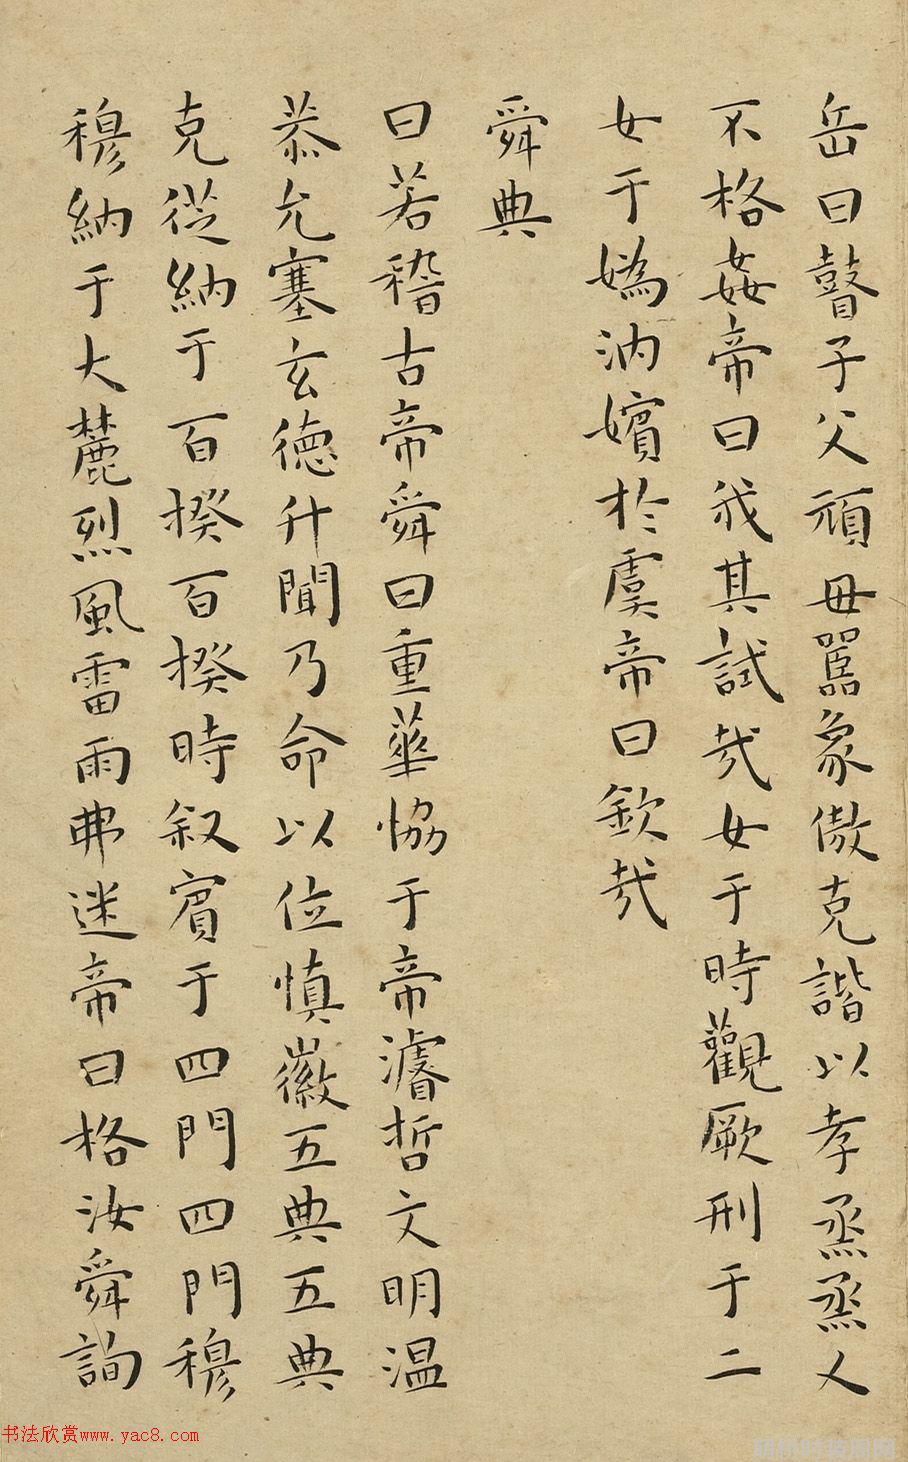 岳曰瞽子父頑毋嚚象傲克諧以孝烝烝乂
不格姦帝曰我其試哉女于時觀厥刑于二
女于媯汭嬪於虞帝曰欽哉
舜典
曰若稽古帝舜曰重華協于帝濬哲文明温
恭允塞玄德升聞乃命以位慎徽五典五典
克從納于百揆百揆時叙賓于四門四門穆
穆納于大麓烈風雷雨弗迷帝曰格汝舜詢
书法欣赏www.yac8.com